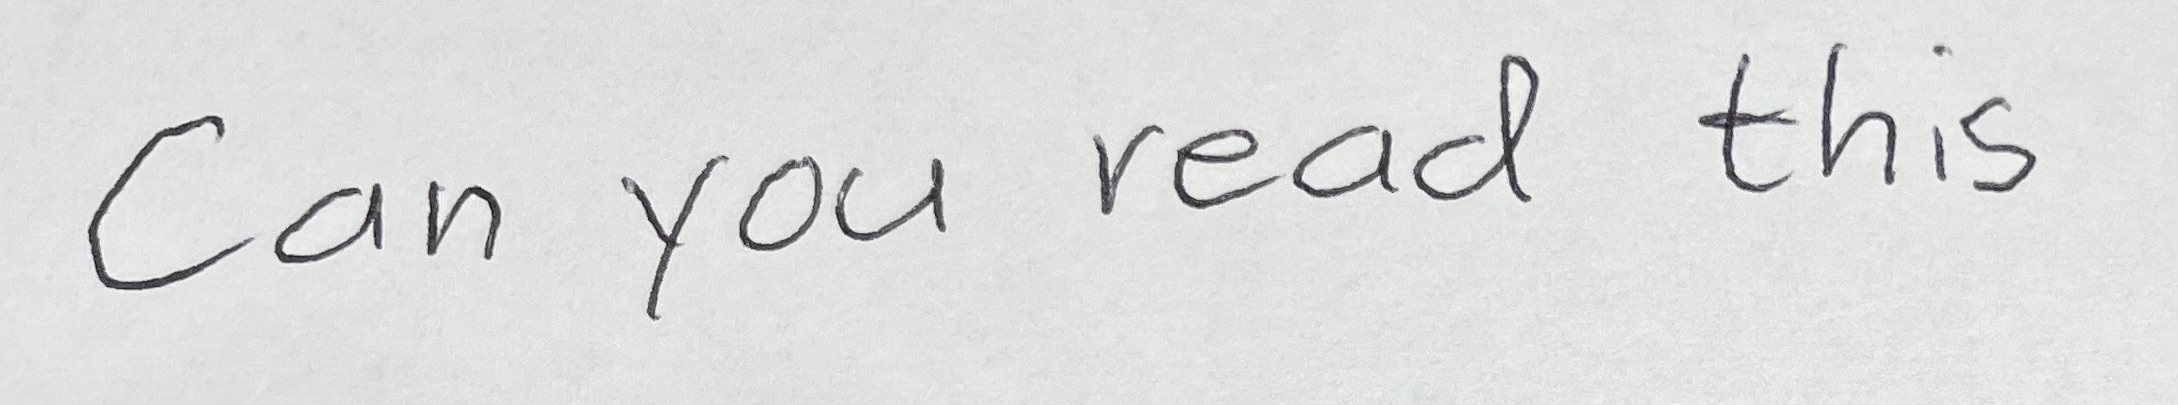 Can you read this